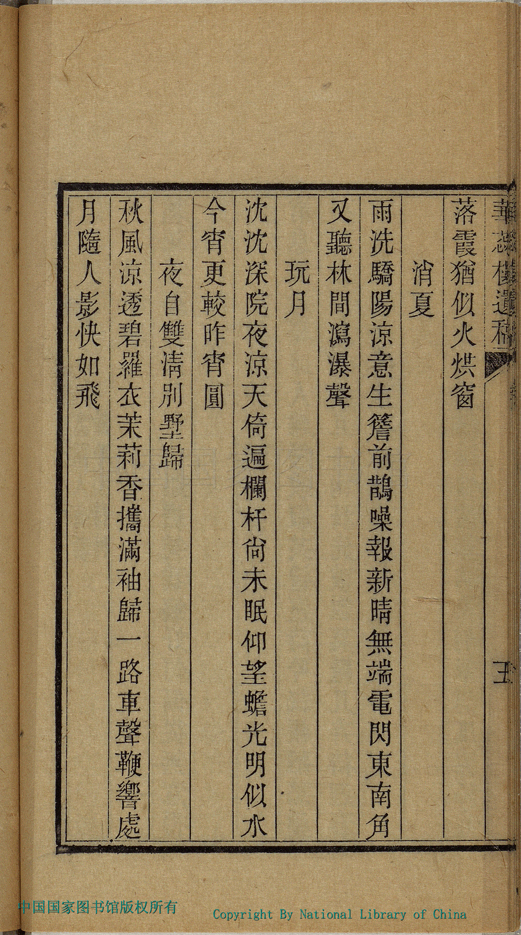 落霞猶似火烘窗
消夏
雨洗驕陽涼意生簷前鵲噪報新晴無端電閃東南角
又聽林間瀉瀑聲
玩月
沈沈深院夜涼天倚遍欄杆尙未眠仰望蟾光明似水
今宵更較昨宵圓
夜自雙清別墅歸
秋風涼透碧羅衣茉莉香攜滿袖歸一路車聲鞭響處
月隨人影快如飛
中国国家图书馆版权所有
Copyright By National Library of China